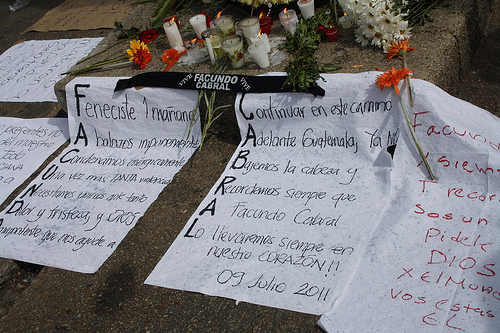 VIVE FACUNDO VIVE
CABRAL
Feneciste 1 mañana
A balazos imponente
Condenemos enérgicamente
Una vez mas TANTA violencia
Necesitamos
Dolor y tristeza y DIOS
Omnipotente que nos ayude a
Continuar en este camino
Adelante Guatemala, Ya NO
Bajemos la cabeza y
Recordemos siempre que
Facundo Cabral
Lo llevaremos siempre en
nuestro CORAZÓN!!
09 Julio 2011
Facun
siem
T recor
Sos un
Pidele
DIOS
X el Mund
Vos estas
EL